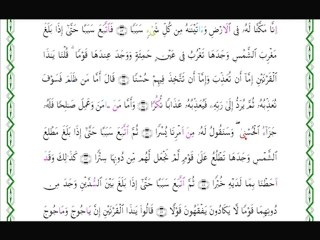 إِنَّا مَكَّنَّا لَهُۥ فِى ٱلْأَرْضِ وَءَاتَيْنَـٰهُ مِن كُلِّ شَىْءٍ سَبَبًا ۝ فَأَتْبَعَ سَبَبًا ۝ حَتَّىٰٓ إِذَا بَلَغَ
مَغْرِبَ ٱلشَّمْسِ وَجَدَهَا تَغْرُبُ فِى عَيْنٍ حَمِئَةٍ وَوَجَدَ عِندَهَا قَوْمًا ۗ قُلْنَا يَـٰذَا
ٱلْقَرْنَيْنِ إِمَّآ أَن تُعَذِّبَ وَإِمَّآ أَن تَتَّخِذَ فِيهِمْ حُسْنًا ۝ قَالَ أَمَّا مَن ظَلَمَ فَسَوْفَ
نُعَذِّبُهُۥ ثُمَّ يُرَدُّ إِلَىٰ رَبِّهِۦ فَيُعَذِّبُهُۥ عَذَابًا نُّكْرًا ۝ وَأَمَّا مَنْ ءَامَنَ وَعَمِلَ صَـٰلِحًا فَلَهُۥ
جَزَآءً ٱلْحُسْنَىٰ ۖ وَسَنَقُولُ لَهُۥ مِنْ أَمْرِنَا يُسْرًا ۝ ثُمَّ أَتْبَعَ سَبَبًا ۝ حَتَّىٰٓ إِذَا بَلَغَ مَطْلِعَ
ٱلشَّمْسِ وَجَدَهَا تَطْلُعُ عَلَىٰ قَوْمٍ لَّمْ نَجْعَل لَّهُم مِّن دُونِهَا سِتْرًا ۝ كَذَٰلِكَ وَقَدْ
أَحَطْنَا بِمَا لَدَيْهِ خُبْرًا ۝ ثُمَّ أَتْبَعَ سَبَبًا ۝ حَتَّىٰٓ إِذَا بَلَغَ بَيْنَ ٱلسَّدَّيْنِ وَجَدَ مِن
دُونِهِمَا قَوْمًا لَّا يَكَادُونَ يَفْقَهُونَ قَوْلًا ۝ قَالُوا۟ يَـٰذَا ٱلْقَرْنَيْنِ إِنَّ يَأْجُوجَ وَمَأْجُوجَ